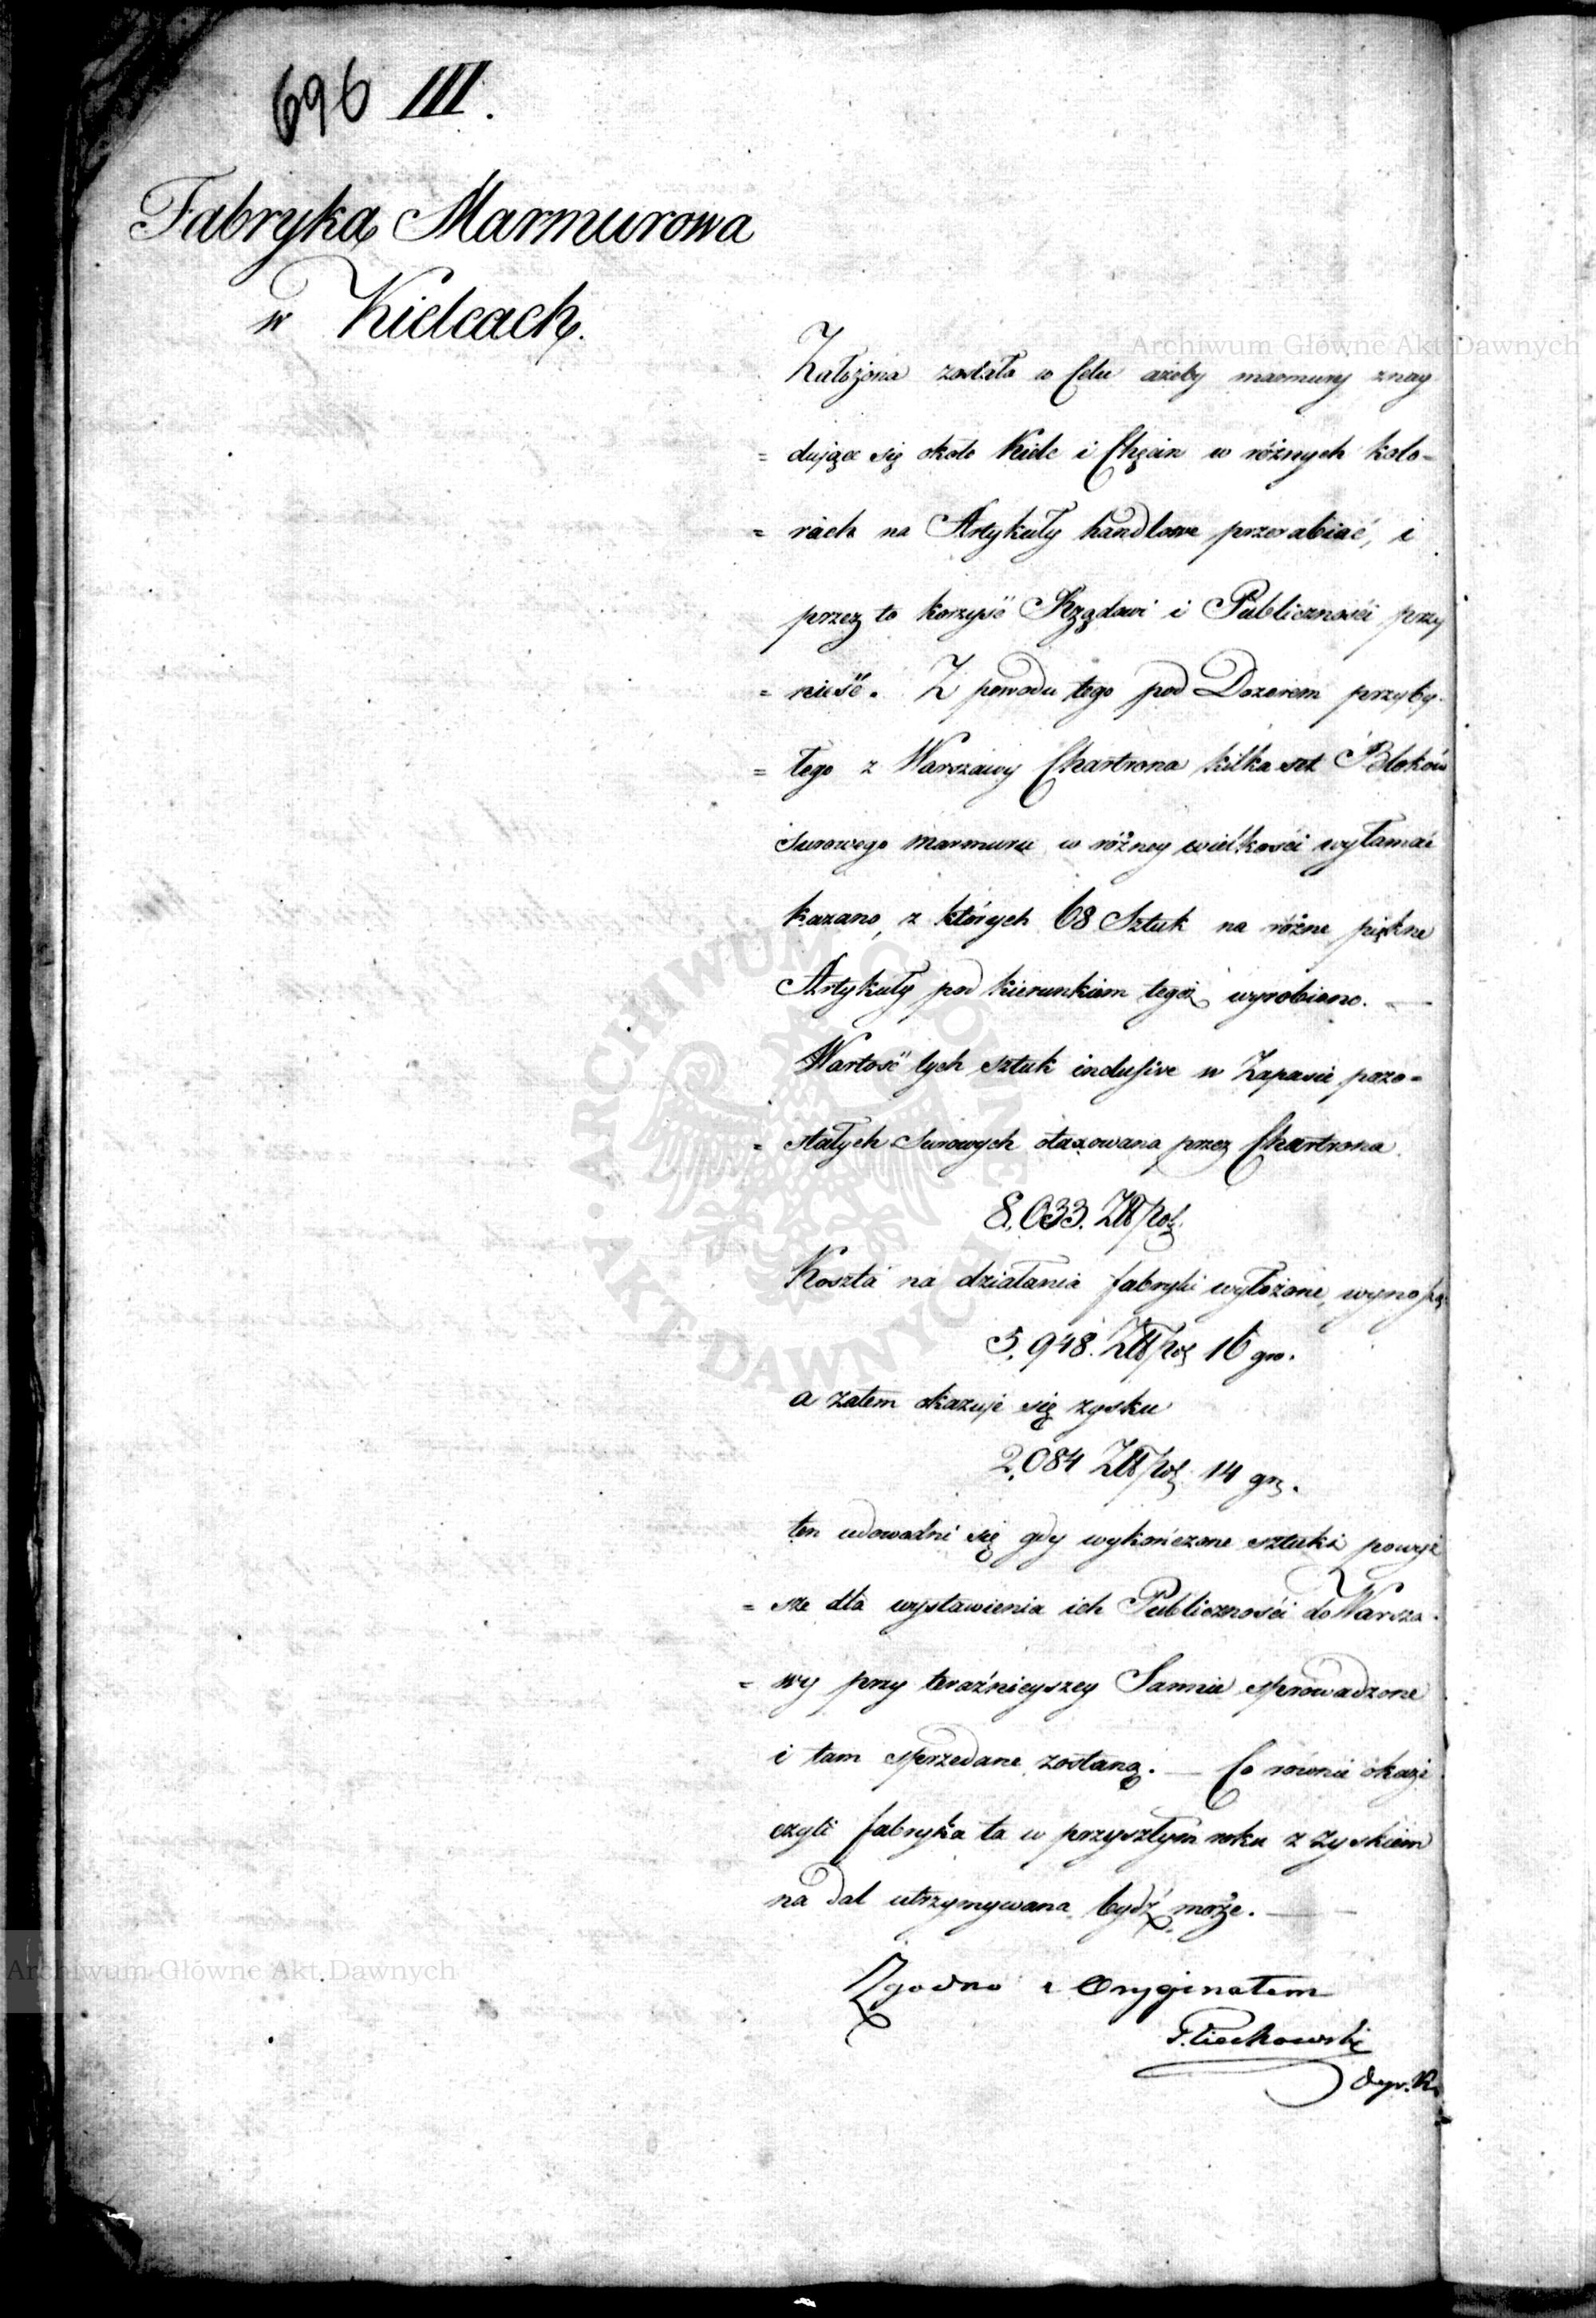 696 III.
Fabryka Marmurowa
w Kielcach.
Archiwum Główne Akt Dawnych
Założona została w Celu ażeby marmury znay
= dujące się około Kielc i Chęcin w różnych kolo=
= rach na Artykuły handlowe przerabiać, i
przez to korzyść Rządowi i Publiczności przy
= nieść. Z powodu tego pod Dozorem przyby=
= łego z Warszawy Chartrona kilka set Bloków
surowego marmuru w różney wielkości wyłamać
kazano, z których 68 Sztuk na różne piękne
Artykuły pod kierunkiem tegoż wyrobiono. —
Wartość tych sztuk inclusive w Zapasie pozo=
= stałych Surowych otaxowana przez Chartrona
8,033. Złł Pol.
Koszta na działania fabryki wyłożone, wynoszą
5,948. Złł Pol 16 gr.
a zatem okazuje się zysku
2,084 Złł Pol. 14 gr.
ten udowodni się gdy wykończone sztuki powyż
= sze dla wystawienia ich Publiczności do Warsza=
= wy przy teraźnieyszey Sannie sprowadzone
i tam sprzedane zostaną. — Co równie okaże
czyli fabryka ta w przyszłym roku z zyskiem
na dal utrzymywana bydź może. —
Zgodno z Oryginałem
Archiwum Główne Akt Dawnych
ARCHIWUM GŁÓWNE AKT DAWNYCH